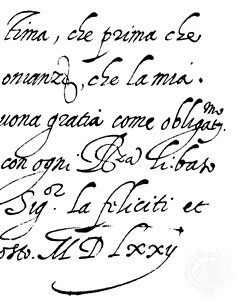 tima, che prima che
onianza, che la mia.
uona gratia come obligatmo.
con ogni Rza li bas
Sigor la feliciti et
osto. M D lxxij